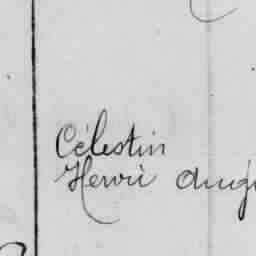 Célestin
Henri